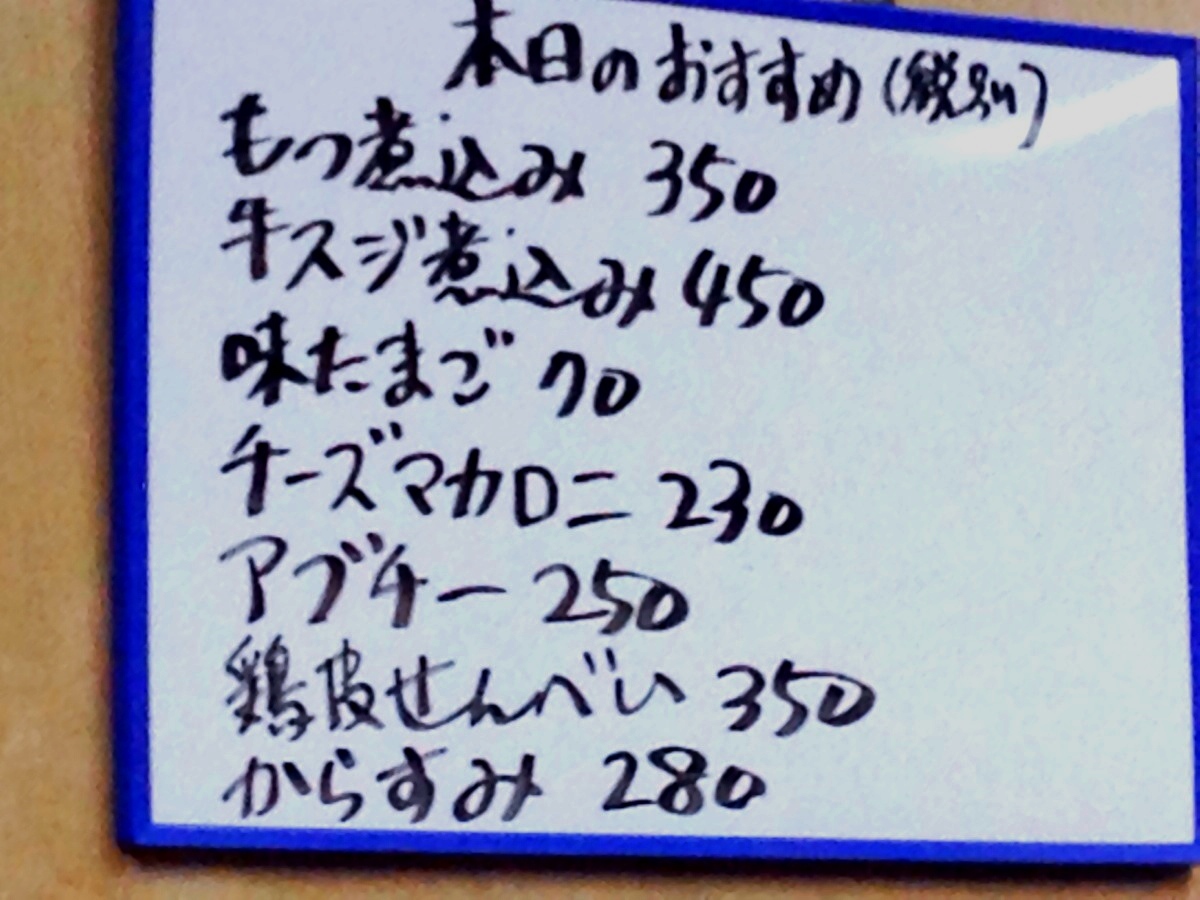 本日のおすすめ(税別)
もつ煮込み 350
牛スジ煮込み 450
味たまご 70
チーズマカロニ 230
アブチー 250
鶏皮せんべい 350
からすみ 280